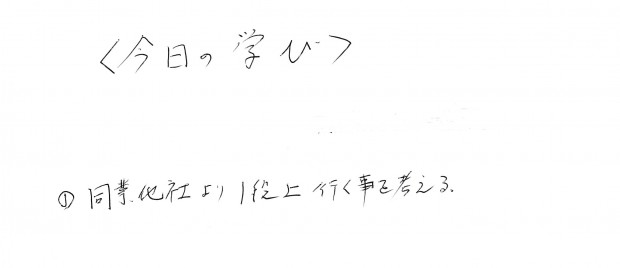 <今日の学び>
① 同業他社より1役上行く事を考える。